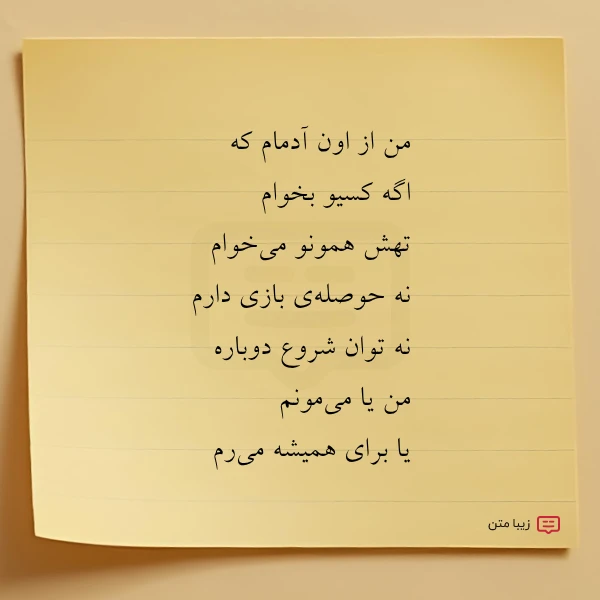 من از اون آدمام که
اگه کسیو بخوام
تهش همونو می‌خوام
نه حوصله‌ی بازی دارم
نه توان شروع دوباره
من یا می‌مونم
یا برای همیشه می‌رم
زیبا متن